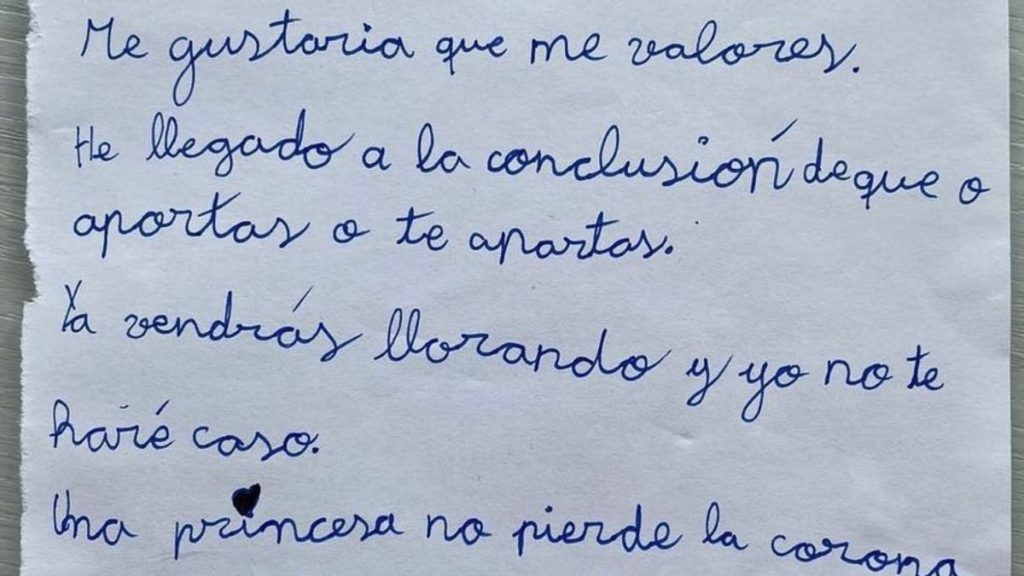 Me gustaria que me valores.
He llegado a la conclusión de que o
aportas o te apartas.
Ya vendrás llorando y yo no te
haré caso.
Una princesa no pierde la corona